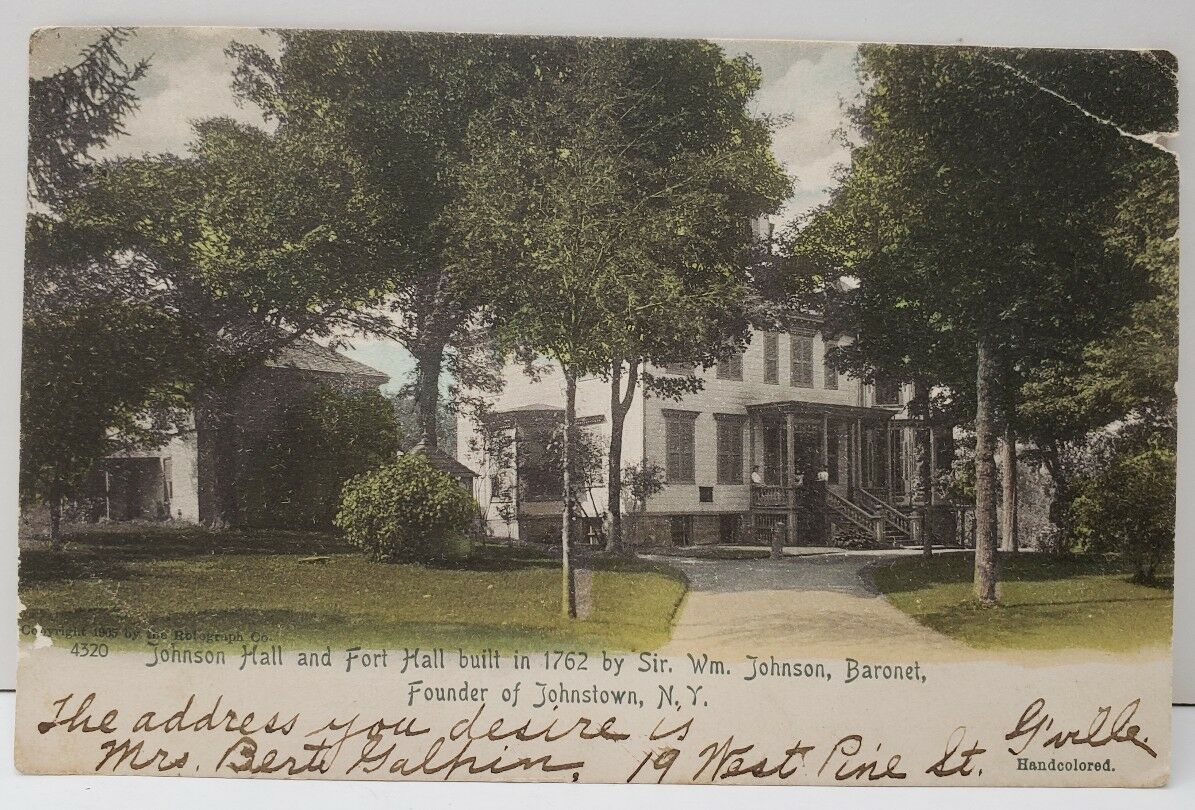 Copyright 1905 by the Rotograph Co.
4320 Johnson Hall and Fort Hall built in 1762 by Sir. Wm. Johnson, Baronet,
Founder of Johnstown, N.Y.
The address you desire is
Mrs. Bert Galpin, 19 West Pine St. G'ville.
Handcolored.